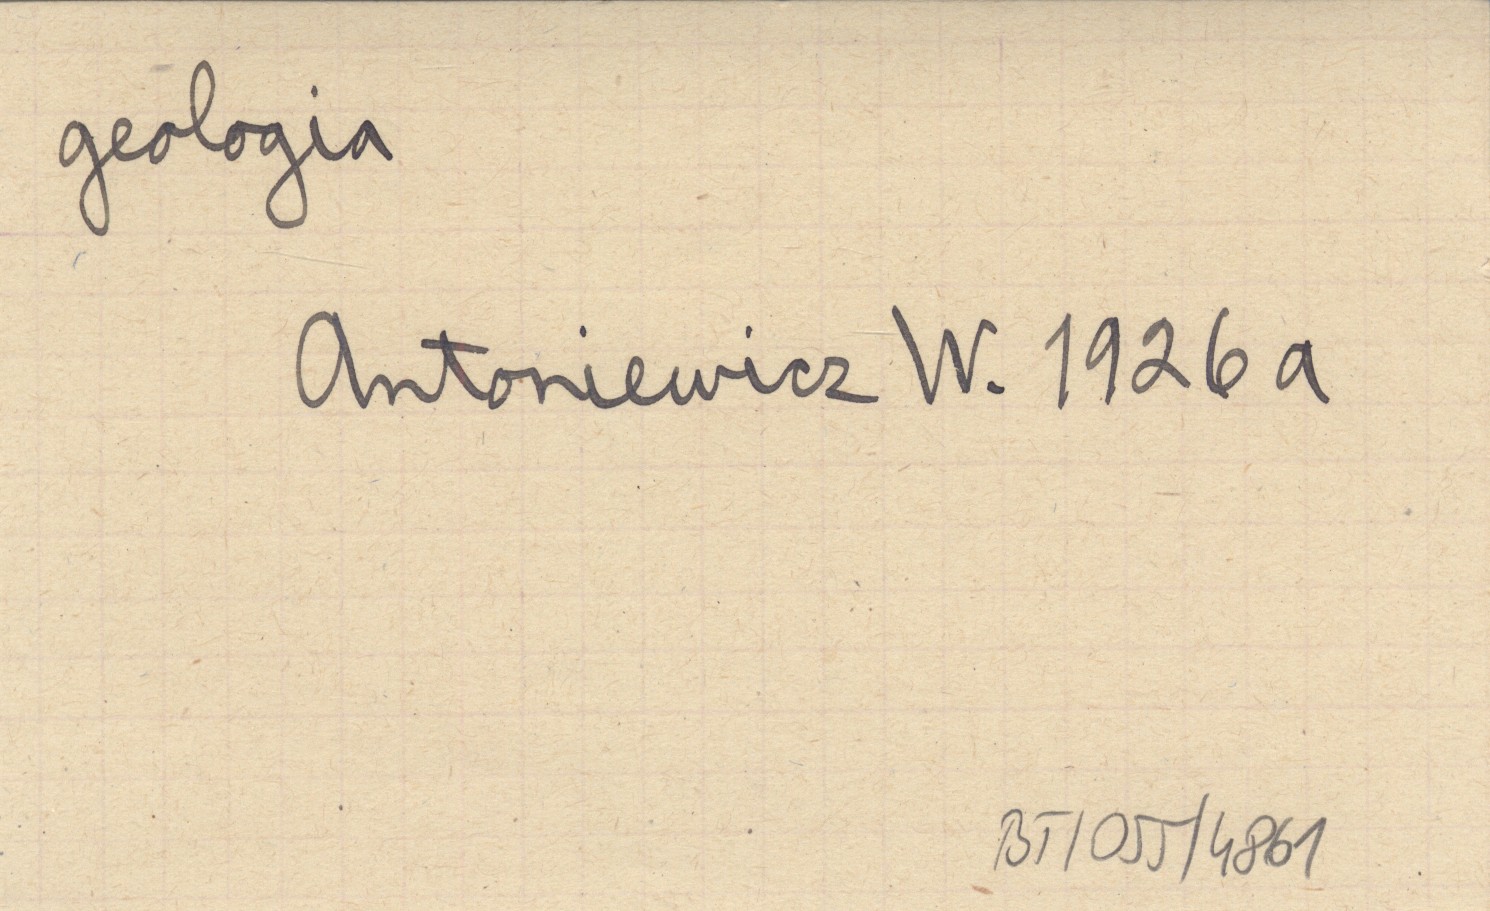 geologia
Antoniewicz W. 1926 a
BT/055/4861